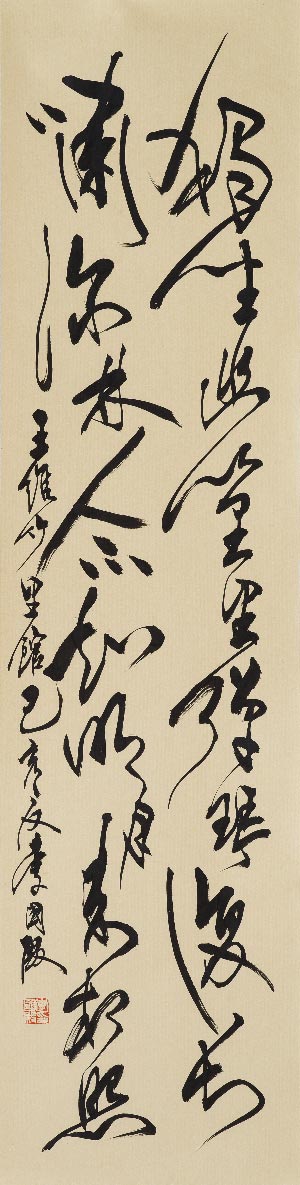 獨坐幽篁里彈琴復長
嘯深林人不知明月來相照
王維竹里館己亥夏李國